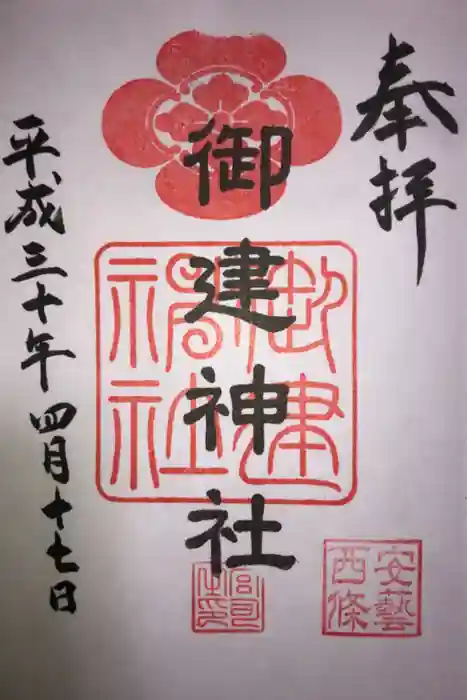 奉拝
御建神社
御建
神社
安藝
西條
宮司
之印
平成三十年四月十七日